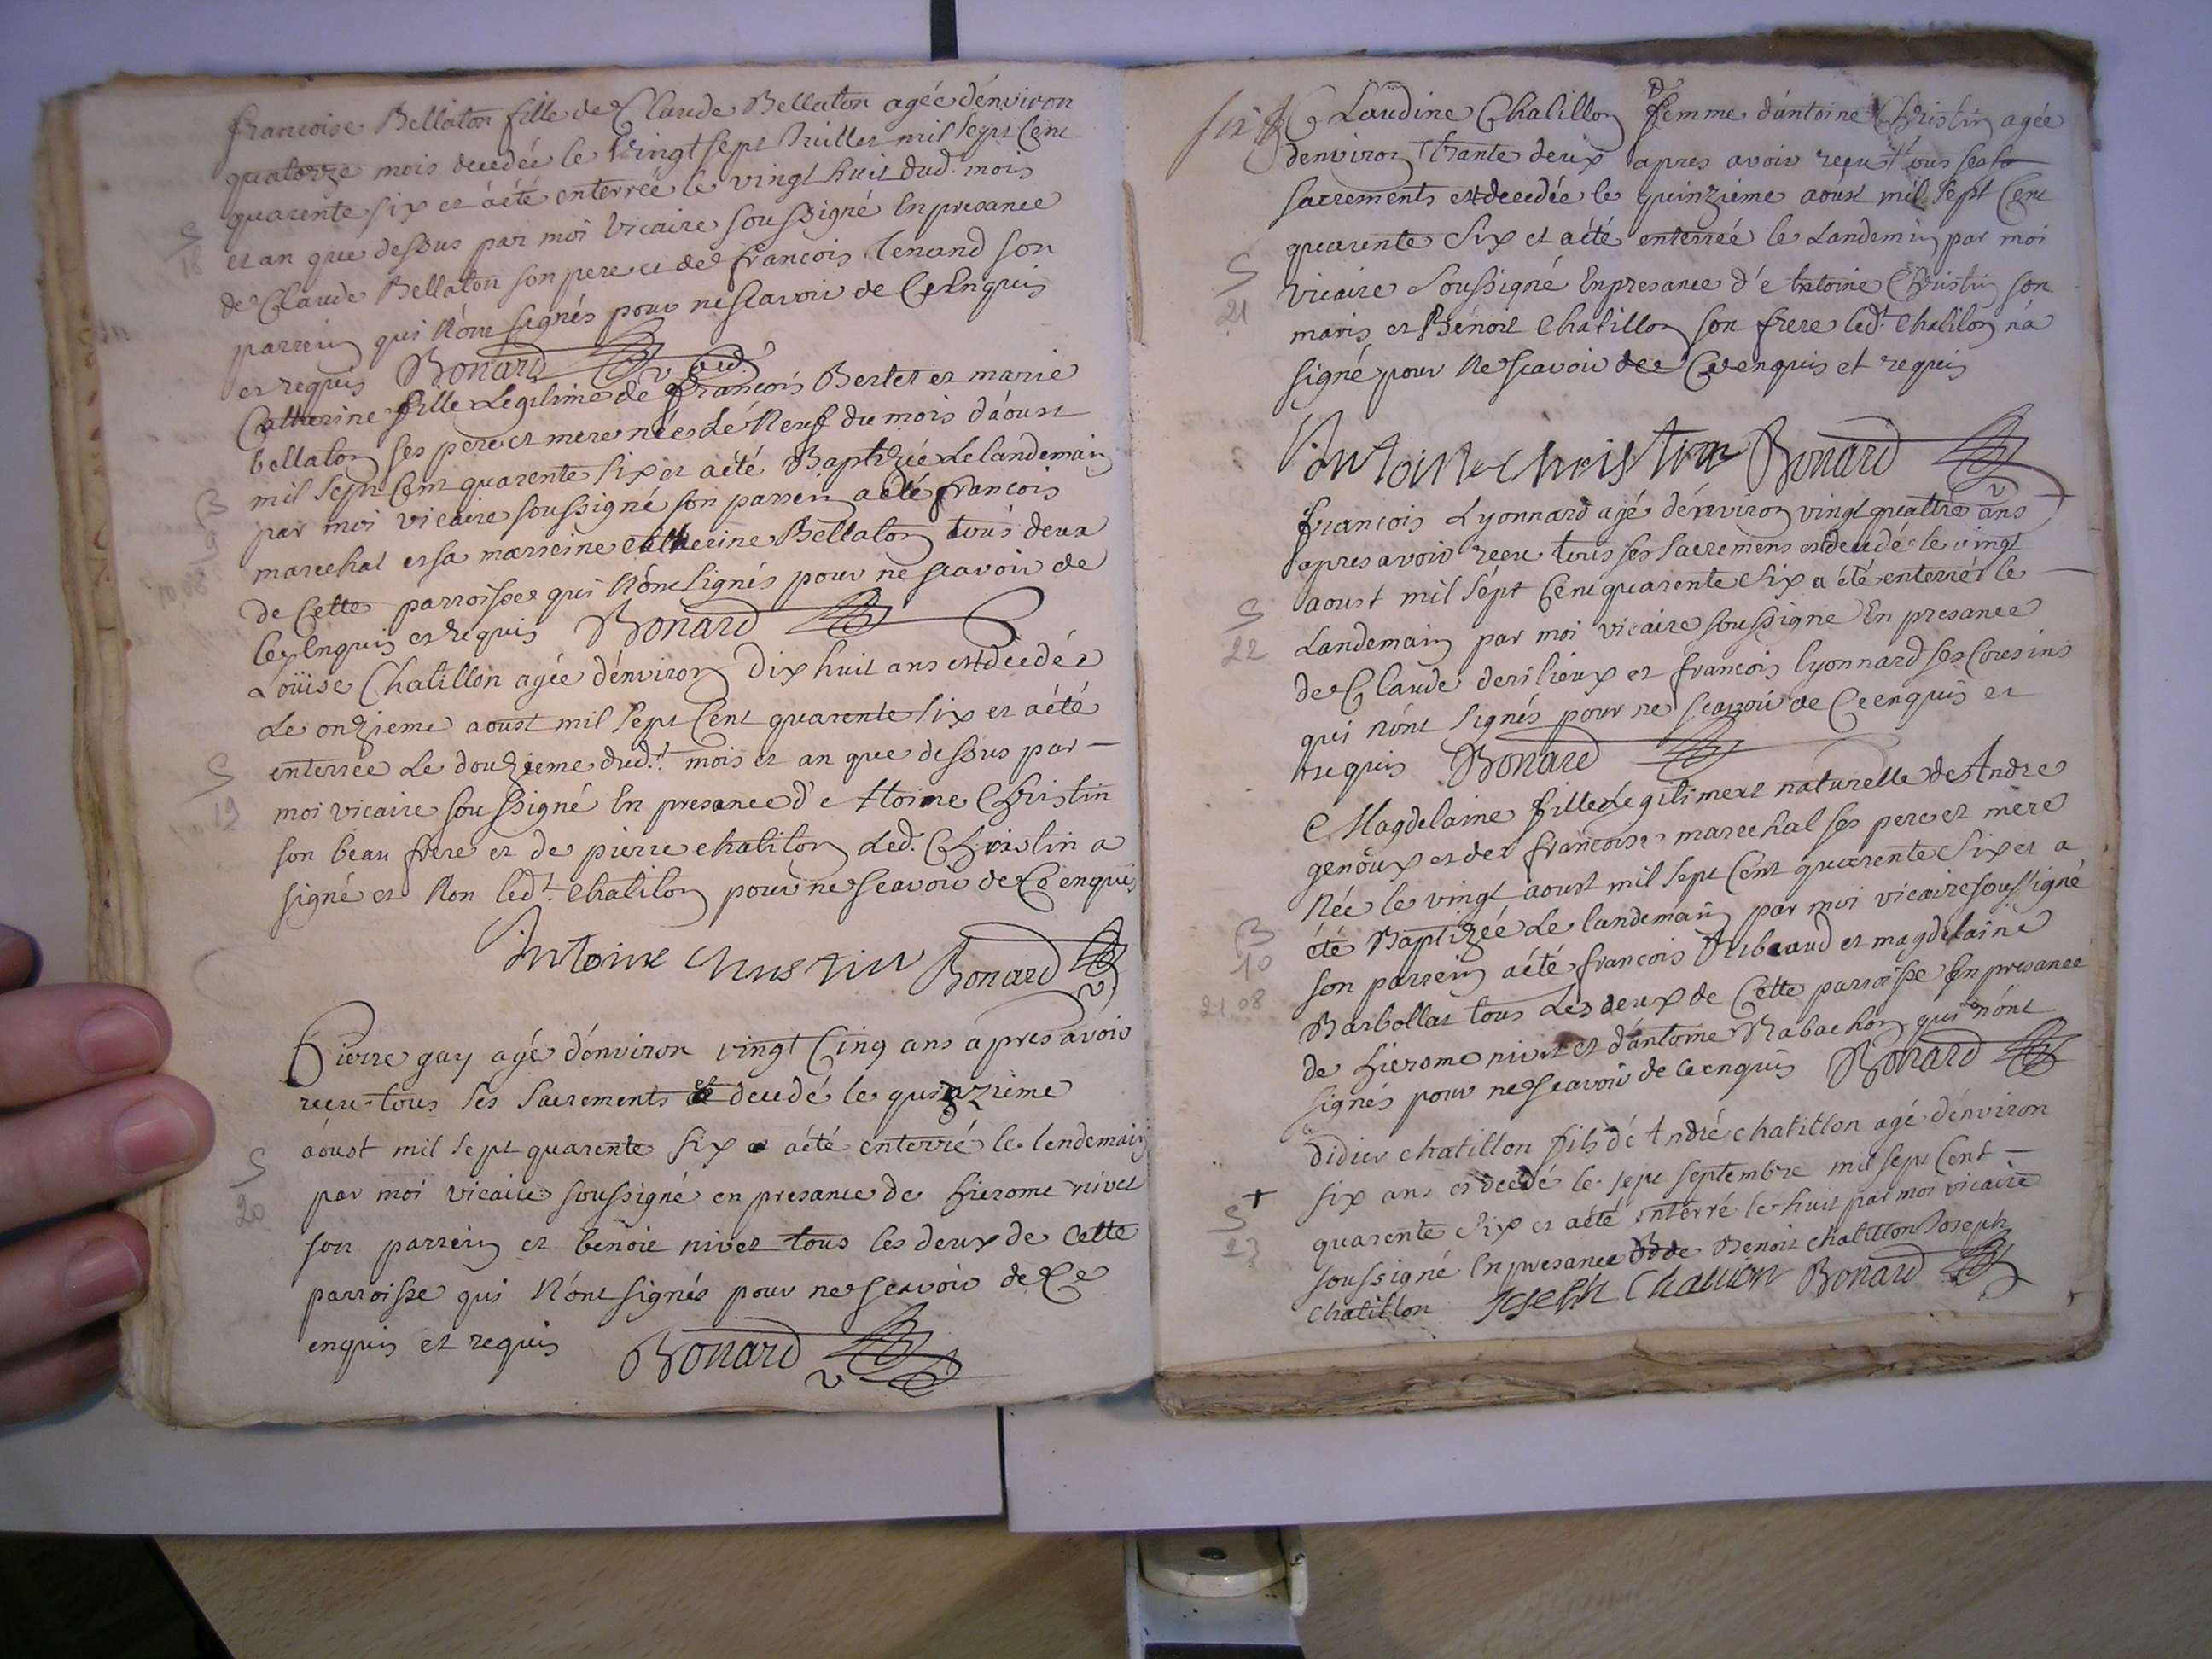 francoise Bellaton fille de Claude Bellaton agée d'environ
quatorze mois decedée le vingt sept Juillet mil sept Cent
quarente six et a été enterrée le vingt huit dud. mois
et an que dessus par moi vicaire soussigné En presance
de Claude Bellaton son pere et de francois Tenand son
parrein qui n'ont signés pour ne scavoir de Ce Enquis
et requis Bonard
S
18
Catherine fille Legitime de francois Berlet et marie
bellaton ses pere et mere née Le Neuf du mois d'aoust
mil sept Cent quarente six et a été Baptizée Le landemain
par moi vicaire soussigné son parrein a été francois
marechal et sa marreine catherine Bellaton tous deux
de Cette parroisse qui N'ont signés pour ne scavoir de
Ce Enquis et requis Bonard
B
9
Loüise Chatillon agée d'environ dix huit ans est decedée
Le onzieme aoust mil sept Cent quarente six et a été
enterrée Le douzieme dud.t mois et an que dessus par
moi vicaire soussigné En presance d'Antoine Christin
son beau frere et de pierre chatilon Led. Christin a
signé et Non led.t chatilon pour ne scavoir de Ce enquis
Antoine christin Bonard
S
19
Pierre guy agé d'environ vingt Cinq ans apres avoir
receu tous ses sacrements et decedé le quinzieme
aoust mil sept quarente six a été enterré le lendemain
par moi vicaire soussigné en presance de hierome nivet
son parrein et benoit nivet tous les deux de Cette
parroisse qui N'ont signés pour ne scavoir de Ce
enquis et requis Bonard
S
20
Claudine Chatillon femme d'antoine Christin agée
d'environ trante deux apres avoir reçu tous ses
sacrements est decedée le quinzieme aoust mil sept Cent
quarente six et a été enterrée le Landemin par moi
vicaire soussigné En presance d'Antoine Christin son
maris et Bénoit chatillon son frere led.t chatilon n'a
signé pour Ne scavoir de Ce enquis et requis
Antoine christin Bonard
S
21
francois Lyonnard agé d'environ vingt quattre ans
apres avoir receu tous ses sacremens est decedé le vingt
aoust mil sept Cent quarente six a été enterrér le
Landemain par moi vicaire soussigné En presance
de Claude et francois lyonnard ses Cousins
qui n'ont signés pour ne scavoir de Ce enquis et
requis Bonard
S
22
Magdelaine fille Legitime et naturelle de Andre
genoux et de francoise marechal ses pere et mere
Née le vingt aoust mil sept Cent quarente six et a
été Baptizée Le landemain par moi vicaire soussigné
son parrein a été francois et magdelaine
Barbollat tous Les deux de Cette parroisse En presance
de hierome nivet et d'antoine Rabachon qui n'ont
signés pour ne scavoir de Ce enquis Bonard
B
10
21 08
didier chatillon fils de André chatillon agé d'environ
six ans et decedé le sept septembre mil sept Cent
quarente six et a été enterré le huit par moi vicaire
soussigné En presance de Benoit chatillon Joseph
chatillon Joseph Chatillon Bonard
+
S
23